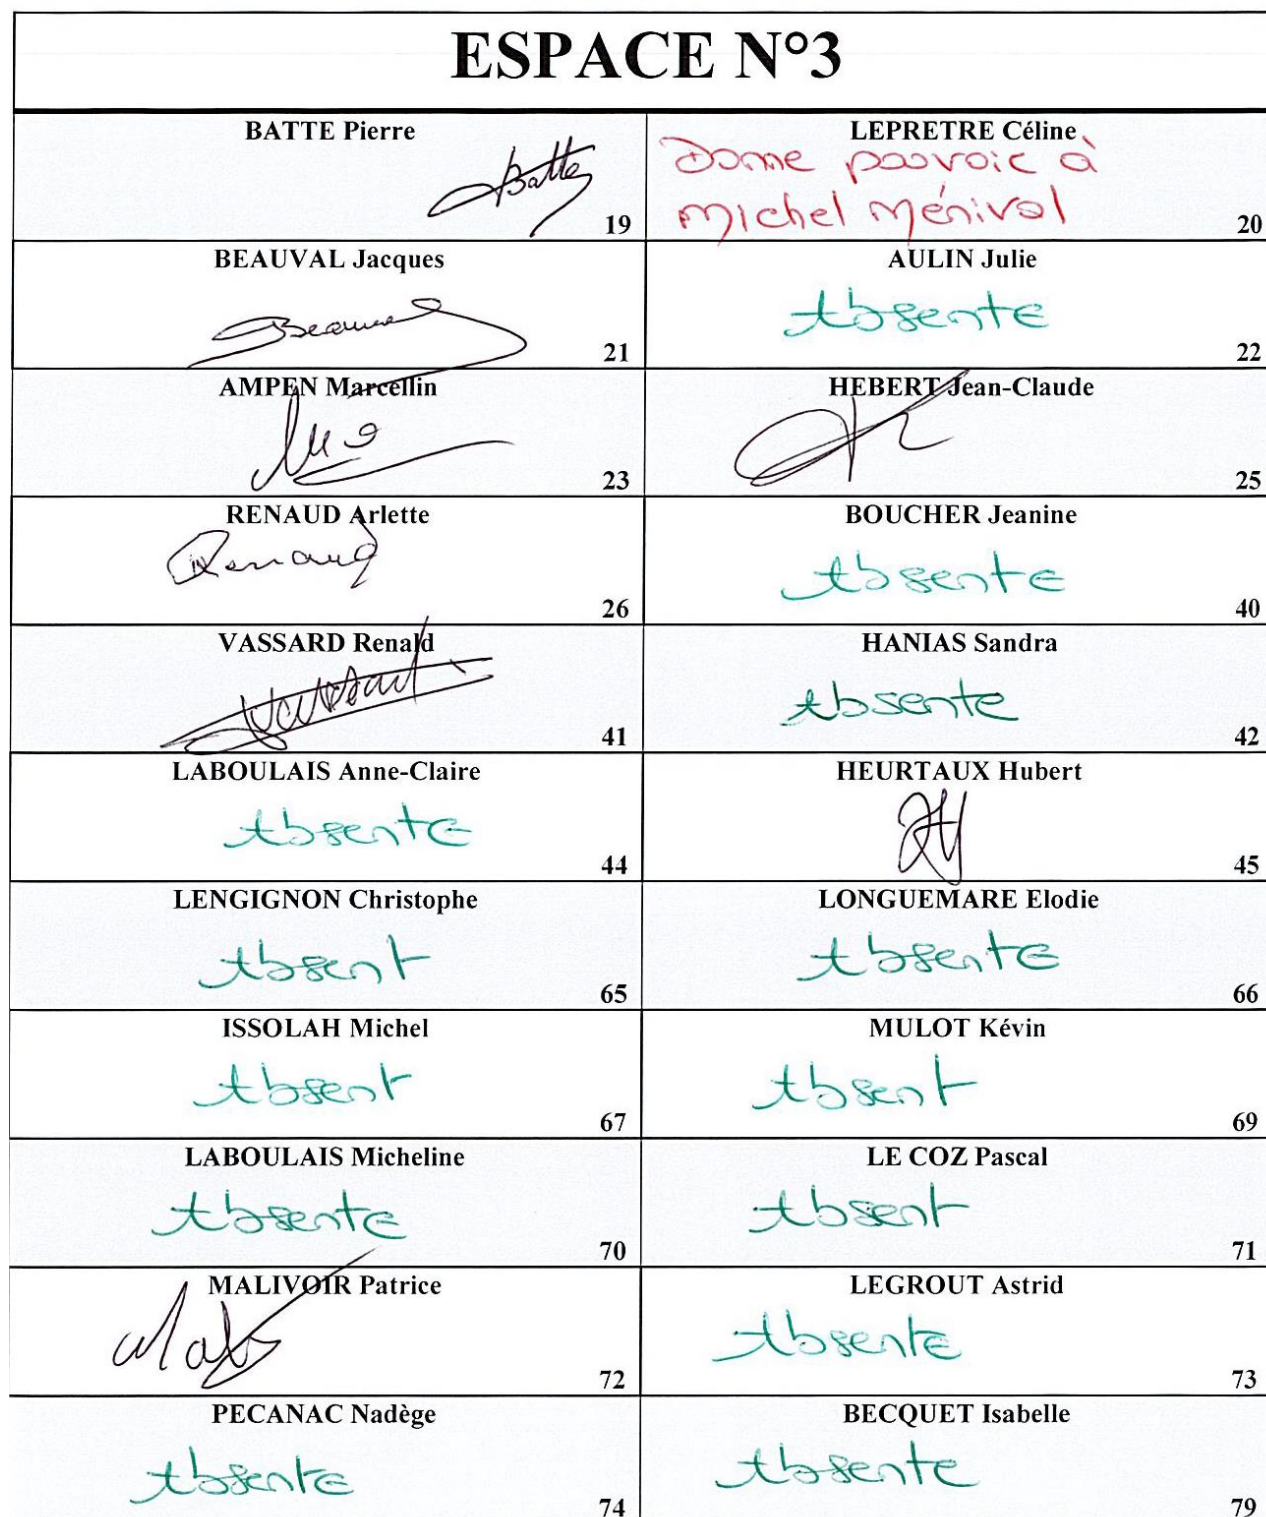 ESPACE N°3
BATTE Pierre
Batte
19
LEPRETRE Céline
Donne pouvoir à
Michel Ménival
20
BEAUVAL Jacques
21
AULIN Julie
Absente
22
AMPEN Marcellin
23
HEBERT Jean-Claude
25
RENAUD Arlette
Renaud
26
BOUCHER Jeanine
Absente
40
VASSARD Renald
41
HANIAS Sandra
Absente
42
LABOULAIS Anne-Claire
Absente
44
HEURTAUX Hubert
45
LENGIGNON Christophe
Absent
65
LONGUEMARE Elodie
Absente
66
ISSOLAH Michel
Absent
67
MULOT Kévin
Absent
69
LABOULAIS Micheline
Absente
70
LE COZ Pascal
Absent
71
MALIVOIR Patrice
72
LEGROUT Astrid
Absente
73
PECANAC Nadège
Absente
74
BECQUET Isabelle
Absente
79